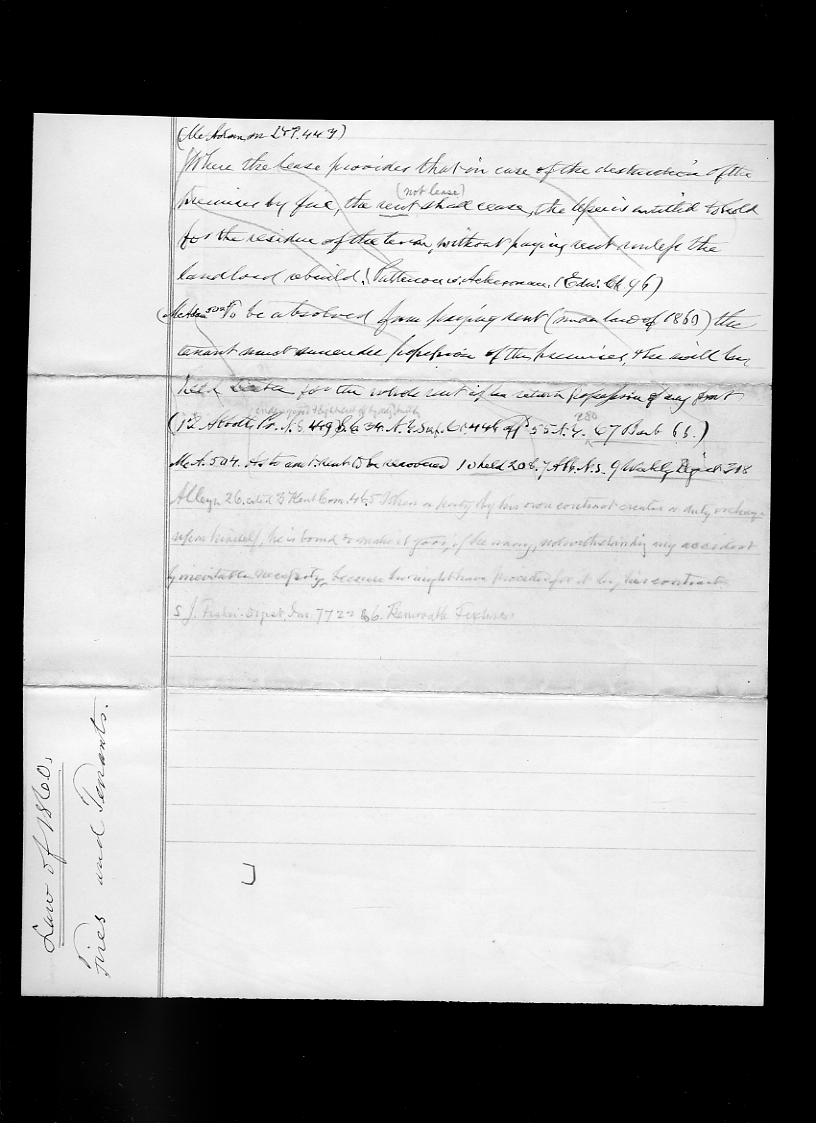 (McAdam on L&T. 447)
Where the lease provides that in case of the destruction of the
(not lease)
premises by fire, the rent shall cease, the lessee is entitled to hold
for the residue of the term, without paying rent unless the
landlord rebuild. (Patterson v. Ackerman. 1 Edw. Ch 96)
(McAdam 502) To be absolved from paying rent (under law of 1860) the
tenant must surrender possession of the premises, & he will be
held liable for the whole rent if he retain possession of any part
280
(12 Abbott Pr. N.S. 34 N.Y. Sup. Ct. 448 aff 55 N.Y. 67 Barb 65.)
McA. 504. As to amt. rent to be recovered 10 held 208. 7 Abb. N.S. 9 Weekly Digest 318
Alleyn 26. cited 3 Kent Com. 465 When a party by his own contract creates a duty or charge
upon himself, he is bound to make it good, if he may, notwithstanding any accident
by inevitable necessity, because he might have provided for it by his contract
S J. Digest, 7722 Removable Fixtures
Law of 1860.
Fires and Tenants.